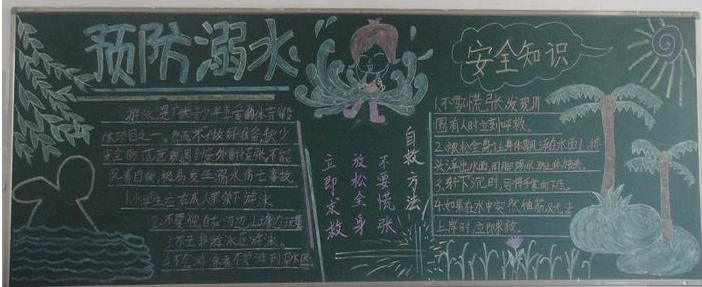 预防溺水
游泳是广大青少年喜爱的体育锻
炼项目之一。然而不做好准备缺少
安全防范意识遇到意外时慌张不能
沉着自救极易发生溺水伤亡事故
1.小学生应在成人带领下游泳
2.不要独自在河边、山塘边玩耍
3.不去非游泳区游泳。
4不会游泳者不要游到深水区
自救方法
不要慌张
放松全身
立即求救
安全知识
1.不要慌张,发现周
围有人时立刻呼救。
2.放松全身让身体飘浮在水面上,将
头浮出水面,用脚踢水
3.身体下沉时,可将手掌向下压。
4如果在水中突然抽筋又无法
上岸时,立即求救。